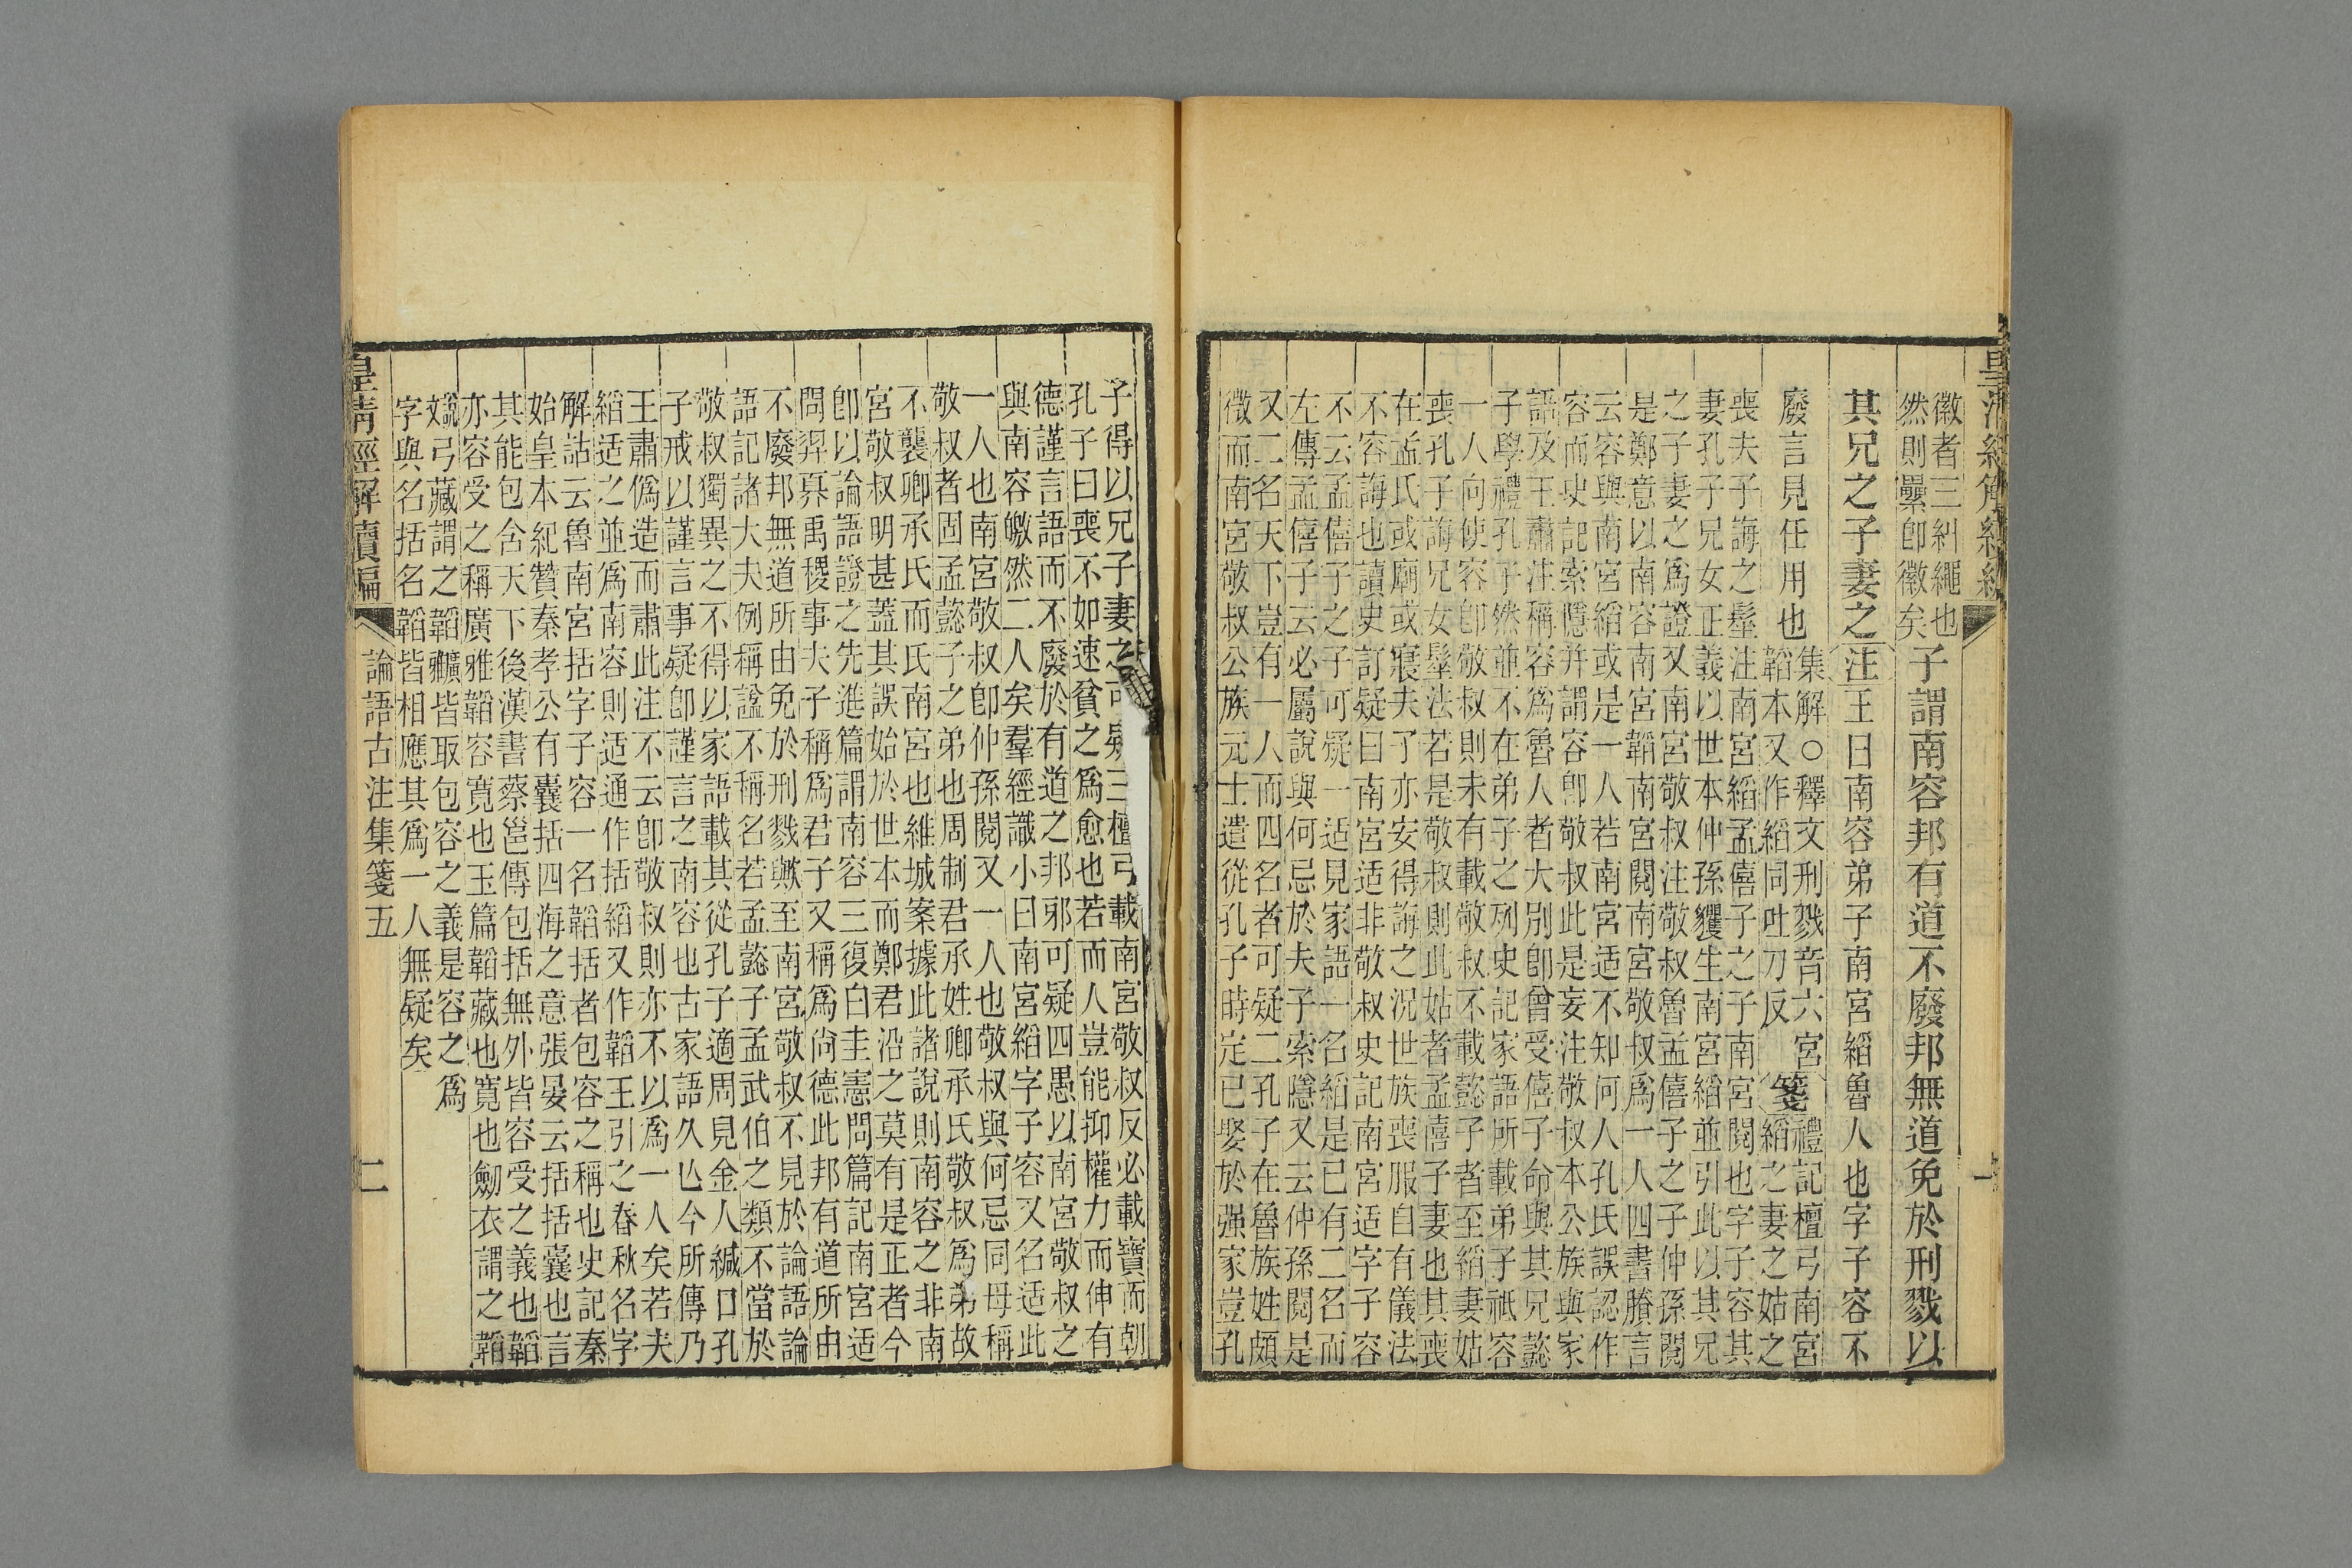 徽者三糾繩也
然則纍卽徽矣
子謂南容邦有道不廢邦無道免於刑戮以
其兄之子妻之
注王曰南容弟子南宮縚魯人也字子容不
廢言見任用也
集解○釋文刑戮音六宮
韜本又作縚同吐刀反
箋
禮記檀弓南宮
縚之妻之姑之
喪夫子誨之髽注南宮縚孟僖子之子南宮閱也字子容其
妻孔子兄女正義以世本仲孫貜生南宮縚並引此以其兄
之子妻之爲證又南宮敬叔注敬叔魯孟僖子之子仲孫閱
是鄭意以南容南宮韜南宮閱南宮敬叔爲一人四書賸言
云容與南宮縚或是一人若南宮适不知何人孔氏誤認作
容而史記索隱并謂容卽敬叔此是妄注敬叔本公族與家
語及王肅注稱容爲魯人者大別卽曾受僖子命與其兄懿
子學禮孔子然並不在弟子之列史記家語所載弟子祇容
一人向使容卽敬叔則未有載敬叔不載懿子者至縚妻姑
喪孔子誨兄女髽法若是敬叔則此姑者孟僖子妻也其喪
在孟氏或廟或寢夫子亦安得誨之況世族喪服自有儀法
不容誨也讀史訂疑曰南宮适非敬叔史記南宮适字子容
不云孟僖子之子可疑一适見家語一名縚是已有二名而
左傳孟僖子云必屬說與何忌於夫子索隱又云仲孫閱是
又二名天下豈有一人而四名者可疑二孔子在魯族姓頗
微而南宮敬叔公族元士遣從孔子時定已娶於强家豈孔
子得以兄子妻之可疑三檀弓載南宮敬叔反必載寶而朝
孔子曰喪不如速貧之爲愈也若而人豈能抑權力而伸有
德謹言語而不廢於有道之邦邪可疑四愚以南宮敬叔之
與南容皦然二人矣羣經識小曰南宮縚字子容又名适此
一人也南宮敬叔卽仲孫閱又一人也敬叔與何忌同母稱
敬叔者固孟懿子之弟也周制君承姓卿承氏敬叔爲弟故
不襲卿承氏而氏南宮也維城案據此諸說則南容之非南
宮敬叔明甚蓋其誤始於世本而鄭君沿之莫有是正者今
卽以論語證之先進篇謂南容三復白圭憲問篇記南宮适
問羿奡禹稷事夫子稱爲君子又稱爲尙德此邦有道所由
不廢邦無道所由免於刑戮歟至南宮敬叔不見於論語論
語記諸大夫例稱諡不稱名若孟懿子孟武伯之類不當於
敬叔獨異之不得以家語載其從孔子適周見金人緘口孔
子戒以謹言事疑卽謹言之南容也古家語久亾今所傳乃
王肅僞造而肅此注不云卽敬叔則亦不以爲一人矣若夫
縚适之並爲南容則适通作括縚又作韜王引之春秋名字
解詁云魯南宮括字子容一名韜括者包容之稱也史記秦
始皇本紀贊秦孝公有囊括四海之意張晏云括括囊也言
其能包含天下後漢書蔡邕傳包括無外皆容受之義也韜
亦容受之稱廣雅韜容寬也玉篇韜藏也寬也劒衣謂之韜
弢弓藏謂之韜皆取包容之義是容之爲
字與名括名韜皆相應其爲一人無疑矣
皇淸經解續編
論語古注集箋五
二